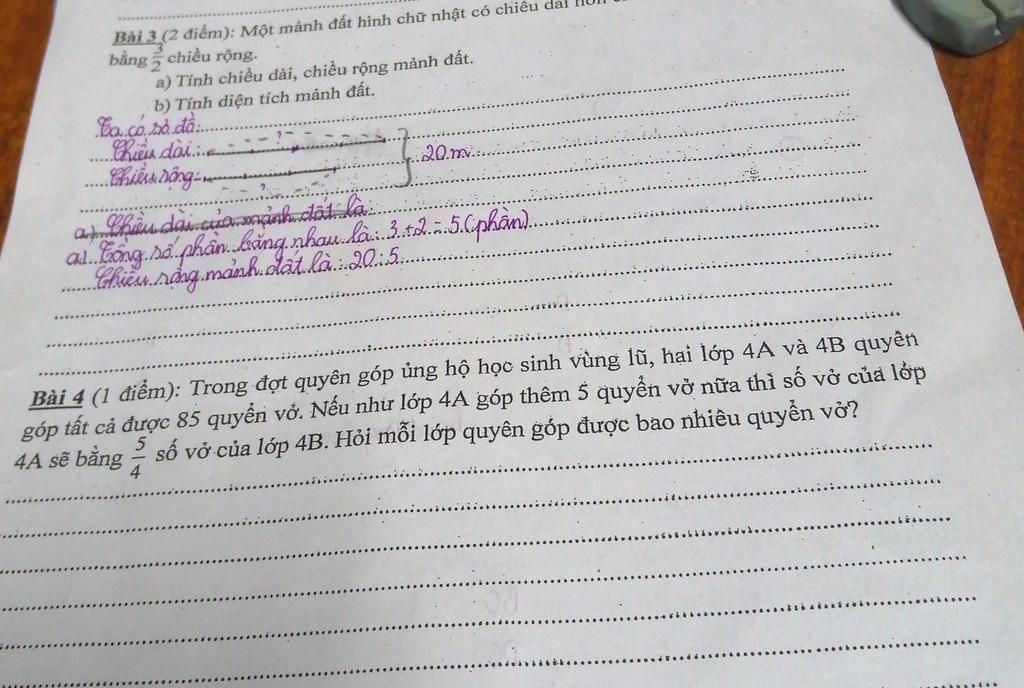 Bài 3 (2 điểm): Một mảnh đất hình chữ nhật có chiều dài hơn
bằng 3/2 chiều rộng.
a) Tính chiều dài, chiều rộng mảnh đất.
b) Tính diện tích mảnh đất.
Ta có sơ đồ:
Chiều dài: ?
Chiều rộng: 20 m
?
a) Chiều dài của mảnh đất là
a) Tổng số phần bằng nhau là: 3+2=5 (phần)
Chiều rộng mảnh đất là: 20:5
Bài 4 (1 điểm): Trong đợt quyên góp ủng hộ học sinh vùng lũ, hai lớp 4A và 4B quyên
góp tất cả được 85 quyển vở. Nếu như lớp 4A góp thêm 5 quyển vở nữa thì số vở của lớp
4A sẽ bằng 5/4 số vở của lớp 4B. Hỏi mỗi lớp quyên góp được bao nhiêu quyển vở?